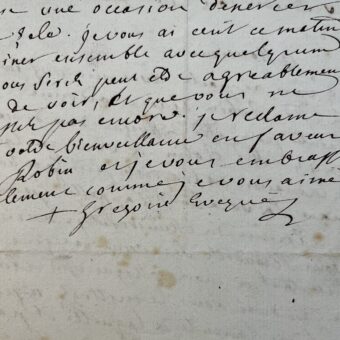 se une occasion d'exercer
zele. je vous ai ecrit ce matin
iner ensemble avec quelqu'un
vous sera peut être agreablement
de voir, et que vous ne
pas encore. je reclame
votre bienveillance en faveur
Robin et je vous embrass
lement comme je vous aime
+ Gregoire Eveque